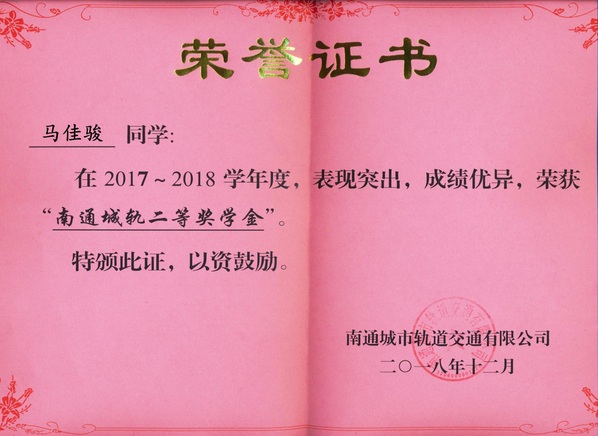 荣誉证书
马佳骏 同学:
在 2017～2018 学年度，表现突出，成绩优异，荣获
“南通城轨二等奖学金”。
特颁此证，以资鼓励。
南通城市轨道交通有限公司
二〇一八年十二月